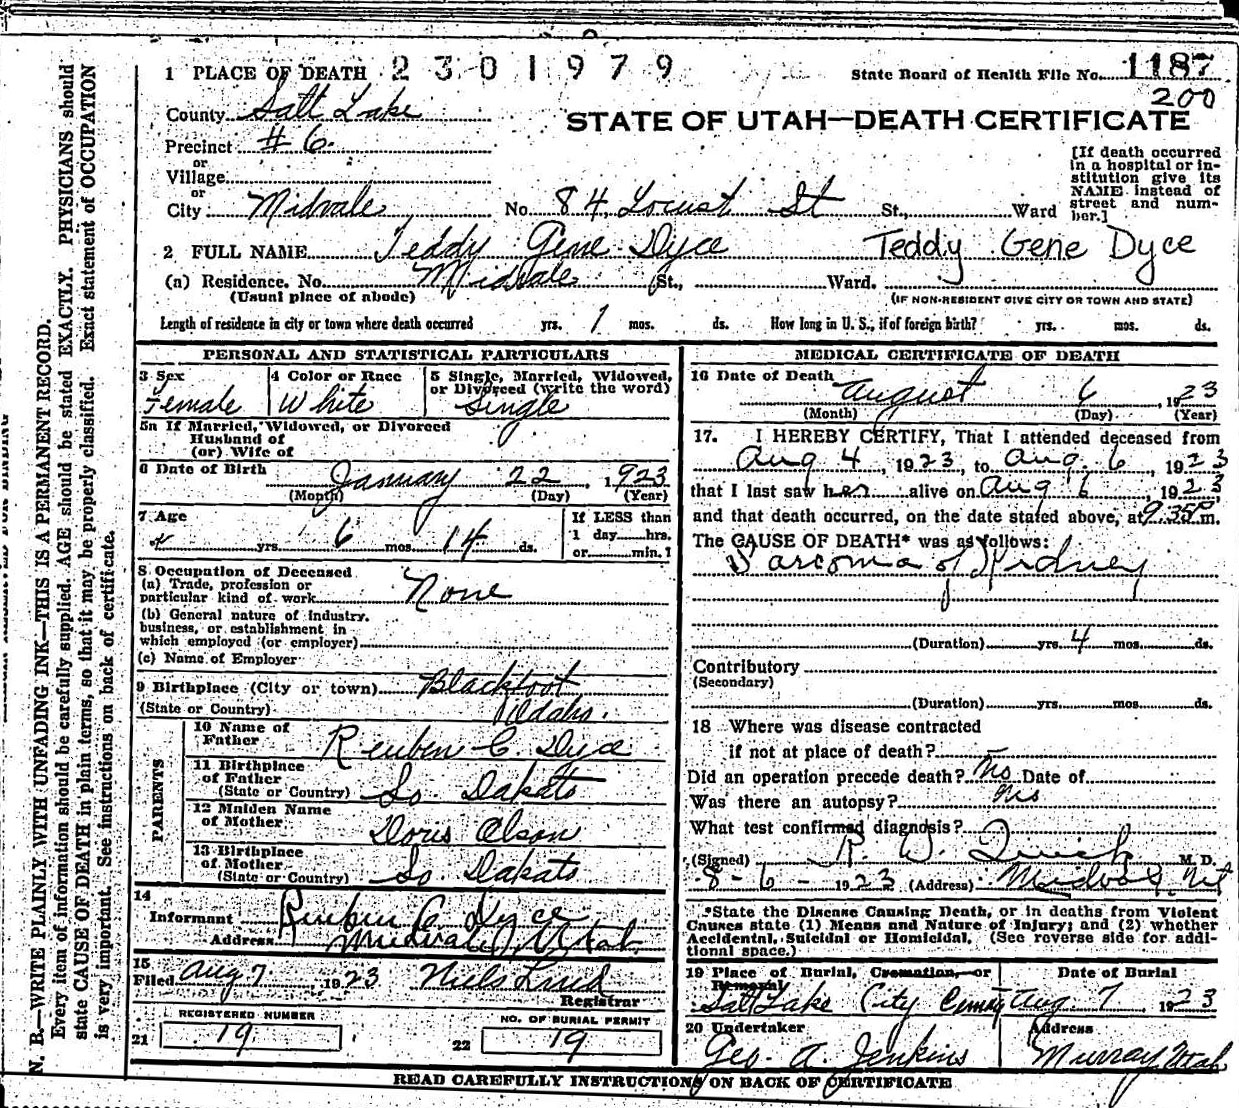 1 PLACE OF DEATH 2301979 State Board of Health File No. 1187
200
County Salt Lake
STATE OF UTAH—DEATH CERTIFICATE
Precinct # 6
or
Village
or
City Midvale No. 84 Locust St St., Ward
[If death occurred in a hospital or institution give its NAME instead of street and number.]
2 FULL NAME Teddy Gene Dyce Teddy Gene Dyce
(a) Residence. No. Midvale St., Ward.
(Usual place of abode) (IF NON-RESIDENT GIVE CITY OR TOWN AND STATE)
Length of residence in city or town where death occurred yrs. 1 mos. ds. How long in U. S., if of foreign birth? yrs. mos. ds.
PERSONAL AND STATISTICAL PARTICULARS
3 Sex 4 Color or Race 5 Single, Married, Widowed, or Divorced (write the word)
Female White Single
5a If Married, Widowed, or Divorced
Husband of
(or) Wife of
6 Date of Birth January 22, 1923
(Month) (Day) (Year)
7 Age
yrs. 6 mos. 14 ds.
If LESS than
1 day hrs.
or min.
8 Occupation of Deceased
(a) Trade, profession or
particular kind of work None
(b) General nature of industry,
business, or establishment in
which employed (or employer)
(c) Name of Employer
9 Birthplace (City or town) Blackfoot
(State or Country) Idaho.
PARENTS
10 Name of
Father Reuben C. Dyce
11 Birthplace
of Father
(State or Country) So. Dakato
12 Maiden Name
of Mother Doris Olson
13 Birthplace
of Mother
(State or Country) So. Dakato
14
Informant Reuben C. Dyce
Address Midvale, Utah
15
Filed Aug 7, 1923 Niels Lind
Registrar
REGISTERED NUMBER NO. OF BURIAL PERMIT
21 19 22 19
MEDICAL CERTIFICATE OF DEATH
16 Date of Death August 6, 1923
(Month) (Day) (Year)
17. I HEREBY CERTIFY, That I attended deceased from
Aug 4, 1923, to Aug. 6, 1923
that I last saw her alive on Aug 6, 1923,
and that death occurred, on the date stated above, at 9.35 P m.
The CAUSE OF DEATH* was as follows:
Sarcoma of Kidney
(Duration) yrs. 4 mos. ds.
Contributory
(Secondary)
(Duration) yrs. mos. ds.
18 Where was disease contracted
if not at place of death? —
Did an operation precede death? No Date of
Was there an autopsy? No
What test confirmed diagnosis?
(Signed) R. W. Quick M. D.
8-6-1923 (Address) Midvale, Ut
*State the Disease Causing Death, or in deaths from Violent
Causes state (1) Means and Nature of Injury; and (2) whether
Accidental, Suicidal or Homicidal. (See reverse side for addi-
tional space.)
19 Place of Burial, Cremation, or Removal Date of Burial
Salt Lake City Cemty Aug 7 1923
20 Undertaker Address
Geo. A. Jenkins Murray, Utah
READ CAREFULLY INSTRUCTIONS ON BACK OF CERTIFICATE
N. B.—WRITE PLAINLY WITH UNFADING INK—THIS IS A PERMANENT RECORD.
Every item of information should be carefully supplied. AGE should be stated EXACTLY. PHYSICIANS should
state CAUSE OF DEATH in plain terms, so that it may be properly classified. Exact statement of OCCUPATION
is very important. See instructions on back of certificate.